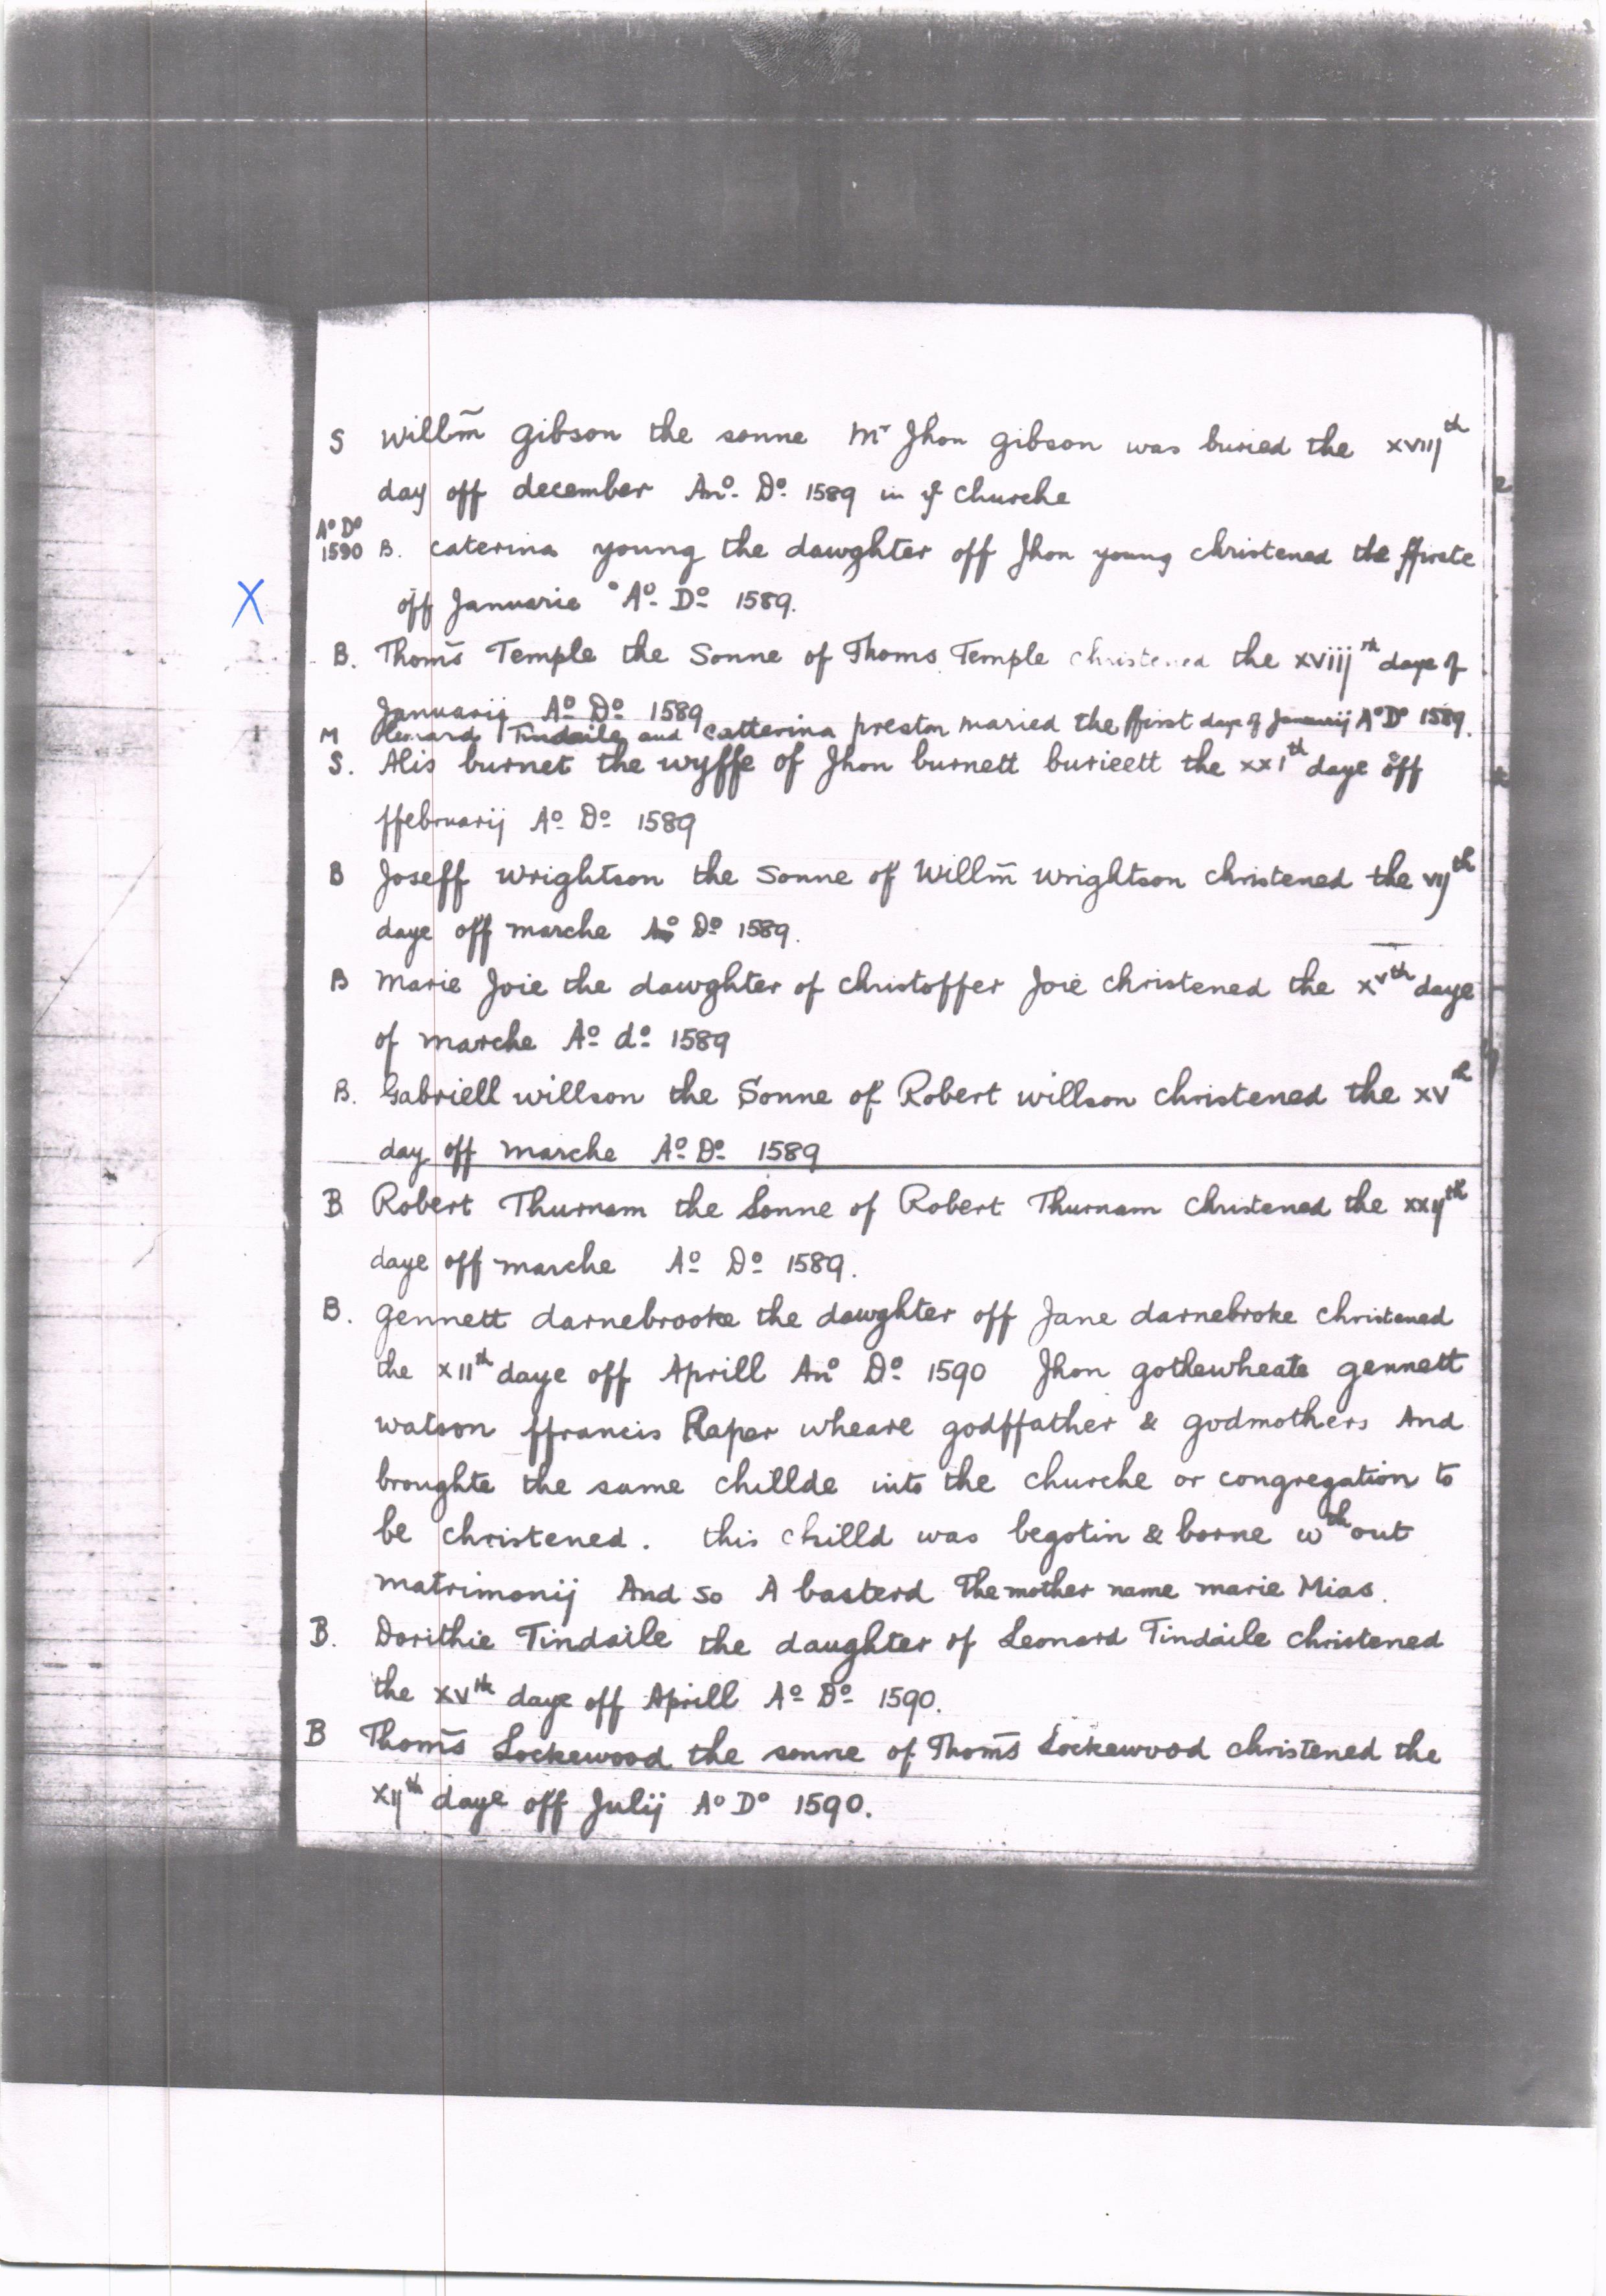 S Willm̃ gibson the sonne Mr Jhon gibson was buried the xviijth
day off december Ano. Do. 1589 in ye churche
Ao Do
1590 B. caterina young the dawghter off Jhon young christened the ffirste
off Januarie Ao. Do. 1589.
B. Thom̃s Temple the Sonne of Thoms Temple christened the xviijth daye of
Januarij Ao Do 1589
M Leonard Tindaile and Catterina preston maried the ffirst daye of Januarij Ao Do 1589.
S. Alis burnet the wyffe of Jhon burnett burieett the xxith daye off
ffebruarij Ao Do 1589
B Joseff wrightson the Sonne of Willm̃ wrightson christened the vijth
daye off marche Ao Do 1589.
B Marie Joie the dawghter of christoffer Joie christened the xvth daye
of marche Ao do 1589
B. Gabriell willson the Sonne of Robert willson christened the xvth
day off marche Ao Do 1589
B Robert Thurnam the Sonne of Robert Thurnam christened the xxijth
daye off marche Ao Do 1589.
B. gennett darnebrooke the dawghter off Jane darnebroke christened
the xiith daye off Aprill Ano Do 1590 Jhon gothewheate gennett
watson ffrancis Raper wheare godffather & godmothers And
broughte the same chillde into the churche or congregation to
be christened. this chilld was begotin & borne wthout
matrimonij And so A basterd The mother name marie Mias.
B. Dorithie Tindaile the daughter of Leonard Tindaile christened
the xvth daye off Aprill Ao Do 1590.
B Thom̃s Lockewood the sonne of Thom̃s Lockewood christened the
xijth daye off Julij Ao Do 1590.